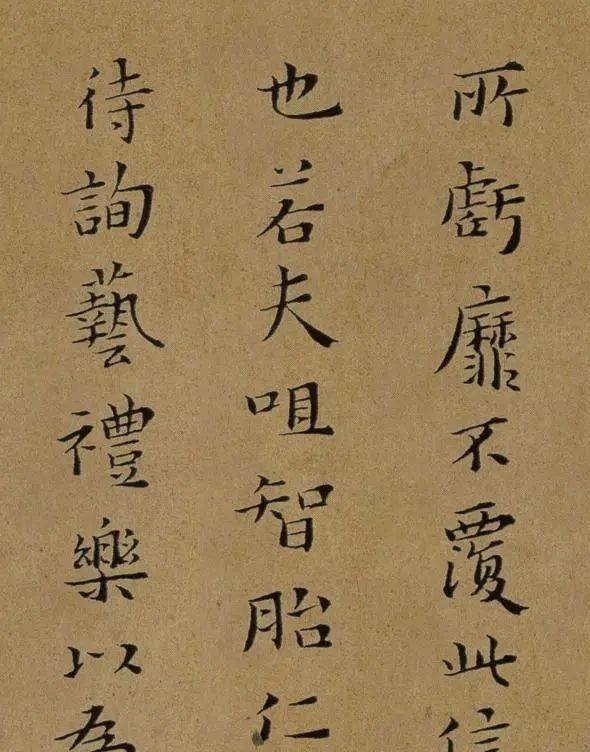 所虧靡不覆此信
也若夫咀智胎仁
待詢藝禮樂以為